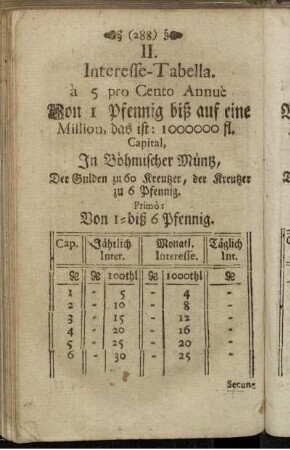 (288)
II.
Interesse-Tabella.
à 5 pro Cento Annuè
Von 1 Pfennig biß auf eine
Million, das ist: 1000000 fl.
Capital,
In Böhmischer Müntz,
Der Gulden zu 60 Kreutzer, der Kreutzer
zu 6 Pfennig.
Primò:
Von 1- biß 6 Pfennig.
Cap. Jährlich Inter. Monatl. Interesse. Täglich Int.
₰ ₰ 100thl ₰ 1000thl ₰
1 - 5 - 4 -
2 - 10 - 8 -
3 - 15 - 12 -
4 - 20 - 16 -
5 - 25 - 20 -
6 - 30 - 25 -
Secun-